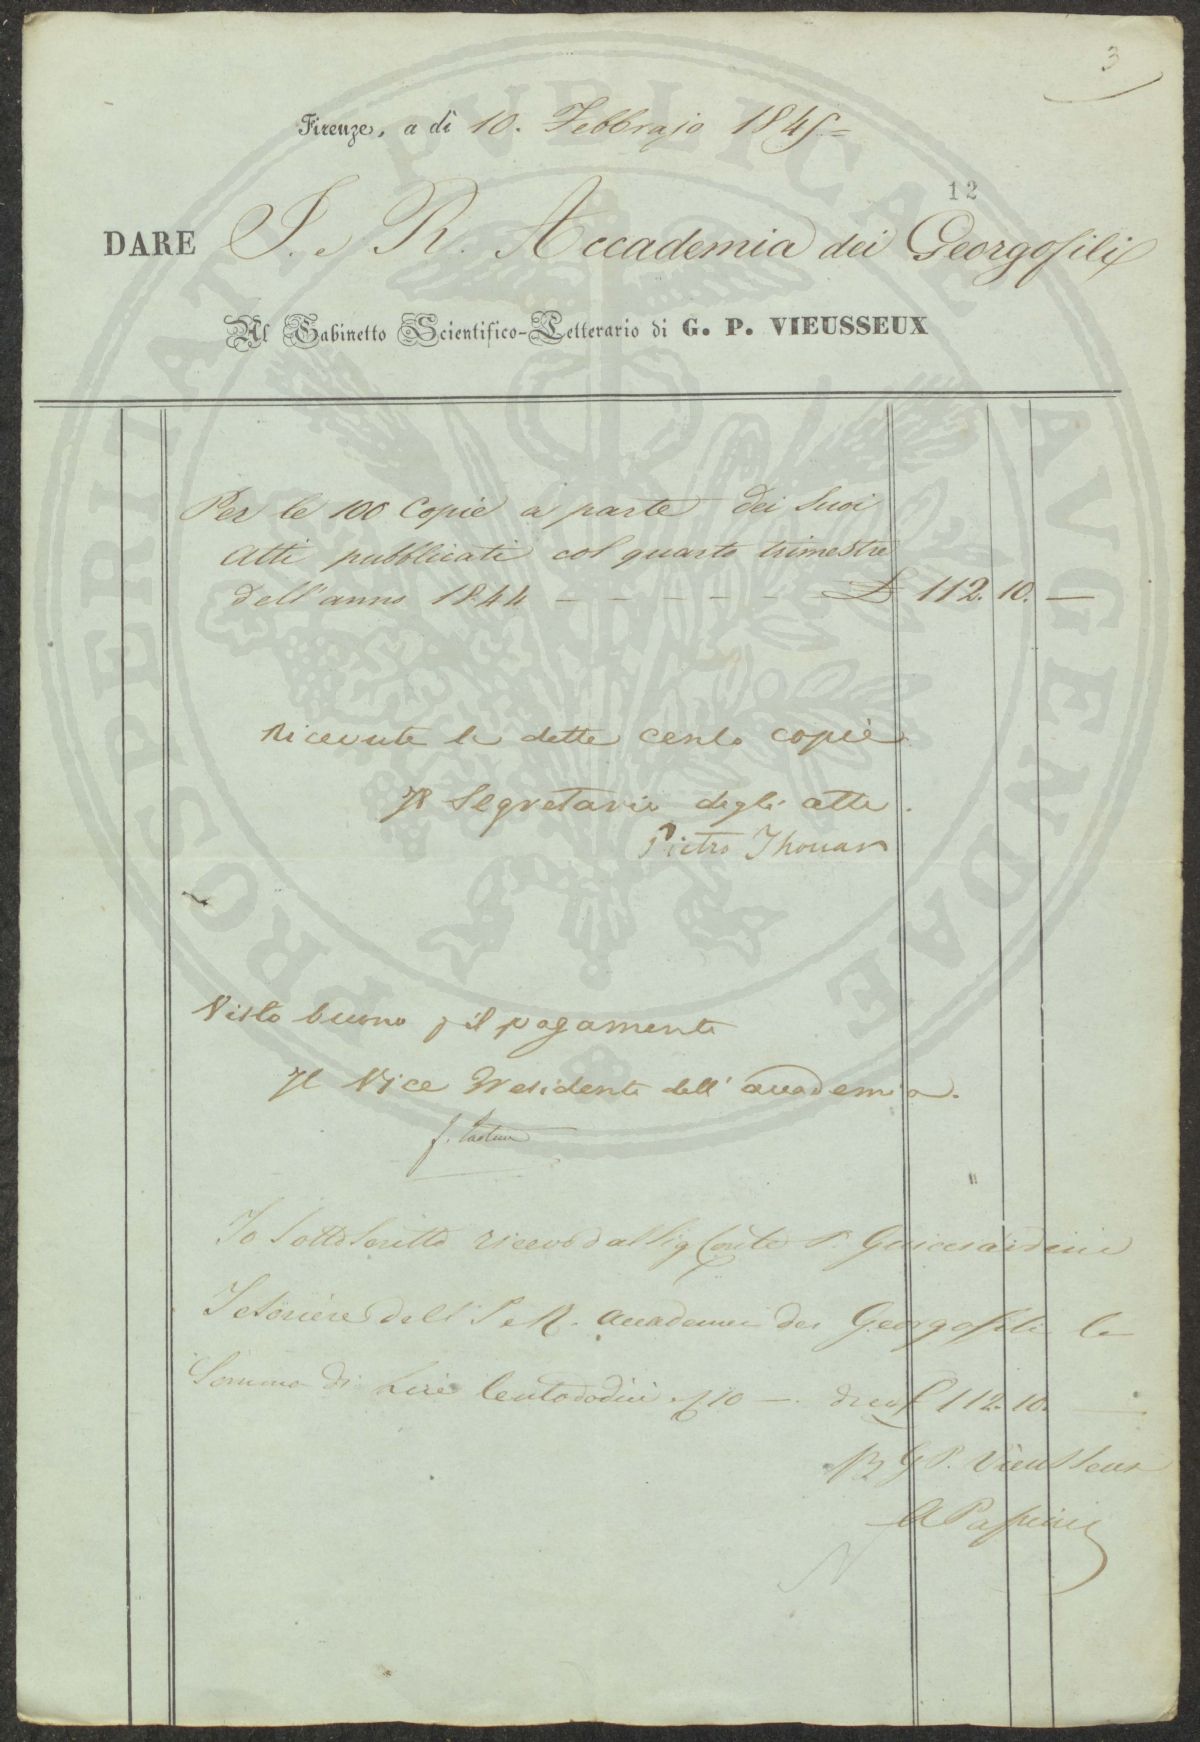 3
Firenze, a dì 10. Febbrajo 1845=
12
DARE I. e R. Accademia dei Georgofili
Al Gabinetto Scientifico-Letterario di G. P. VIEUSSEUX
Per le 100 Copie a parte dei suoi
atti pubblicati col quarto trimestre
dell'anno 1844 - - - - - - - £ 112. 10. —
Ricevute le dette cento copie
Il Segretario degli atti.
Pietro Thouar
Visto buono p il pagamento
Il Vice Presidente dell'accademia.
Io sottoscritto ricevo dal Sig Conte P. Guicciardini
Tesoriere dell'I e R. accademia dei Georgofili la
Somma di Lire Centododici 10 —. dico £ 112. 10. —
G P. Vieusseux
A Papini
PROSPERITATI PVBLICAE AVGENDAE